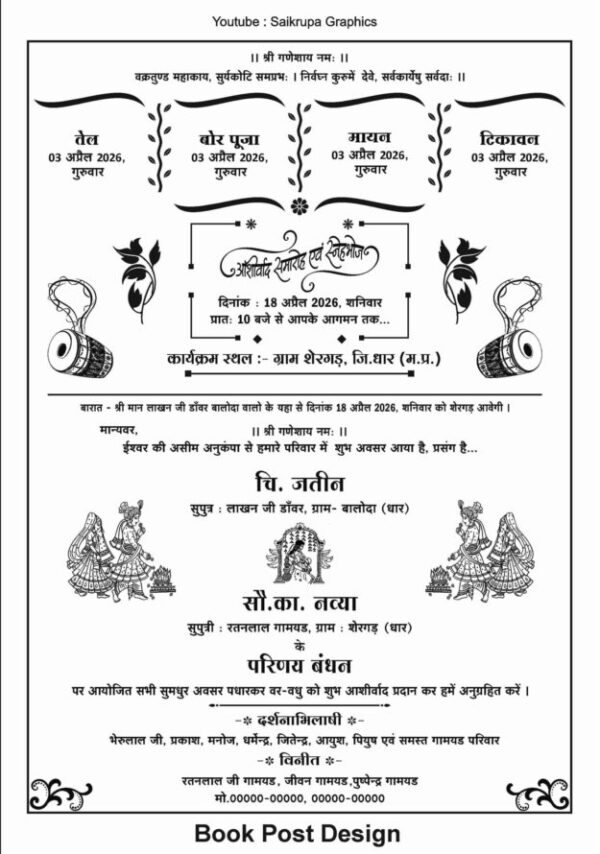 Youtube : Saikrupa Graphics
।। श्री गणेशाय नमः ।।
वक्रतुण्ड महाकाय, सुर्यकोटि समप्रभः । निर्वघ्न कुरुमें देवे, सर्वकार्येषु सर्वदाः ।।
तेल
03 अप्रैल 2026,
गुरुवार
बोर पूजा
03 अप्रैल 2026,
गुरुवार
मायन
03 अप्रैल 2026,
गुरुवार
टिकावन
03 अप्रैल 2026,
गुरुवार
आँशीर्वाद समारोह एवं स्नेहभोज
दिनांक : 18 अप्रैल 2026, शनिवार
प्रातः 10 बजे से आपके आगमन तक...
कार्यक्रम स्थल :- ग्राम शेरगड़, जि.धार (म.प्र.)
बारात - श्री मान लाखन जी डाँवर बालोदा वालो के यहा से दिनांक 18 अप्रैल 2026, शनिवार को शेरगड़ आवेगी ।
मान्यवर,
।। श्री गणेशाय नमः ।।
ईश्वर की असीम अनुकंपा से हमारे परिवार में शुभ अवसर आया है, प्रसंग है...
चि. जतीन
सुपुत्र : लाखन जी डाँवर, ग्राम- बालोदा (धार)
सौ.का. नव्या
सुपुत्री : रतनलाल गामयड, ग्राम : शेरगड़ (धार)
के
परिणय बंधन
पर आयोजित सभी सुमधुर अवसर पधारकर वर-वधु को शुभ आशीर्वाद प्रदान कर हमें अनुग्रहित करें ।
-❇ दर्शनाभिलाषी ❇-
भेरुलाल जी, प्रकाश, मनोज, धर्मेन्द्र, जितेन्द्र, आयुश, पियुष एवं समस्त गामयड परिवार
-❇ विनीत ❇-
रतनलाल जी गामयड, जीवन गामयड,पुष्पेन्द्र गामयड
मो.00000-00000, 00000-00000
Book Post Design